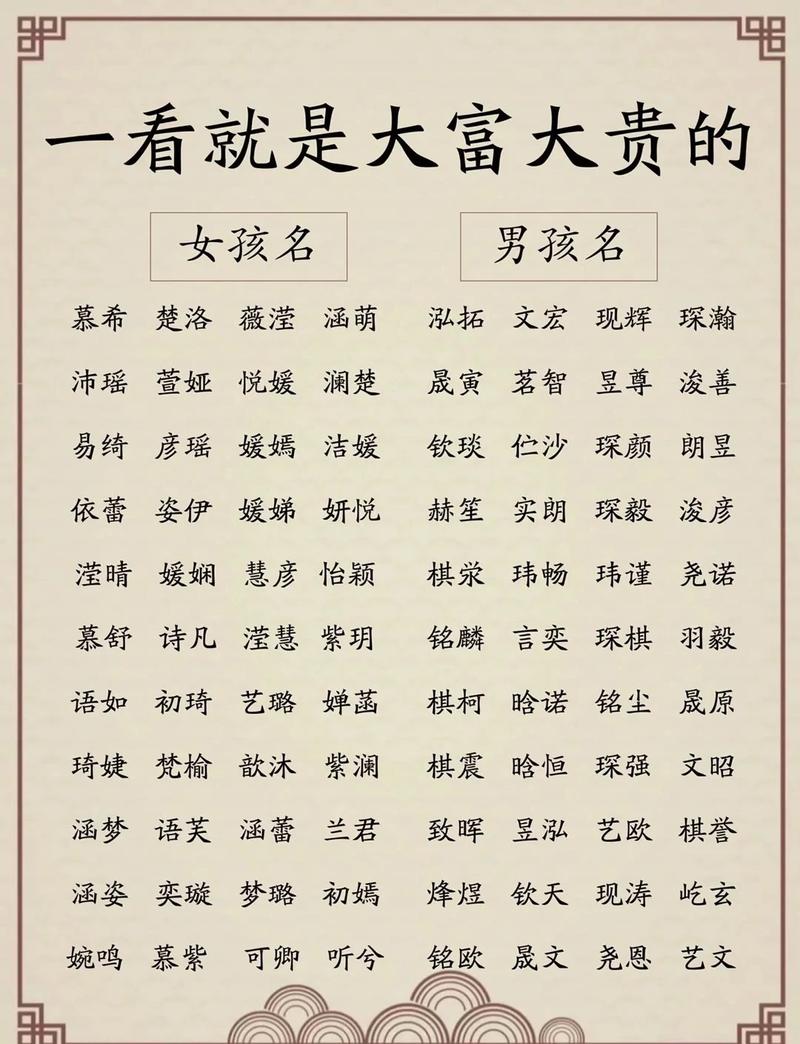 一看就是大富大贵的
女孩名 男孩名
慕希 楚洛 薇滢 涵萌 泓拓 文宏 现辉 琛瀚
沛瑶 萱娅 悦媛 澜楚 晟寅 茗智 昱尊 浚善
易绮 彦瑶 媛嫣 洁媛 钦琰 伫沙 琛颜 朗昱
依蕾 姿伊 媛娣 妍悦 赫笙 实朗 琛毅 浚彦
滢晴 媛娴 慧彦 怡颖 棋泶 玮畅 玮谨 尧诺
慕舒 诗凡 滢慧 紫玥 铭麟 言奕 琛棋 羽毅
语如 初琦 艺璐 婵菡 棋柯 晗诺 铭尘 晟原
琦婕 梵榆 歆沐 紫澜 棋震 晗恒 琛强 文昭
涵梦 语芙 涵蕾 兰君 致晖 昱泓 艺欧 棋誉
涵姿 奕璇 梦璐 初嫣 烽煜 钦天 现涛 屹玄
婉鸣 慕紫 可卿 听兮 铭欧 晟文 尧恩 艺文